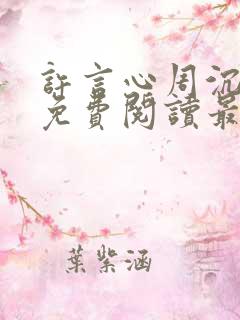 許言心周沉
免費閱讀最
葉紫涵